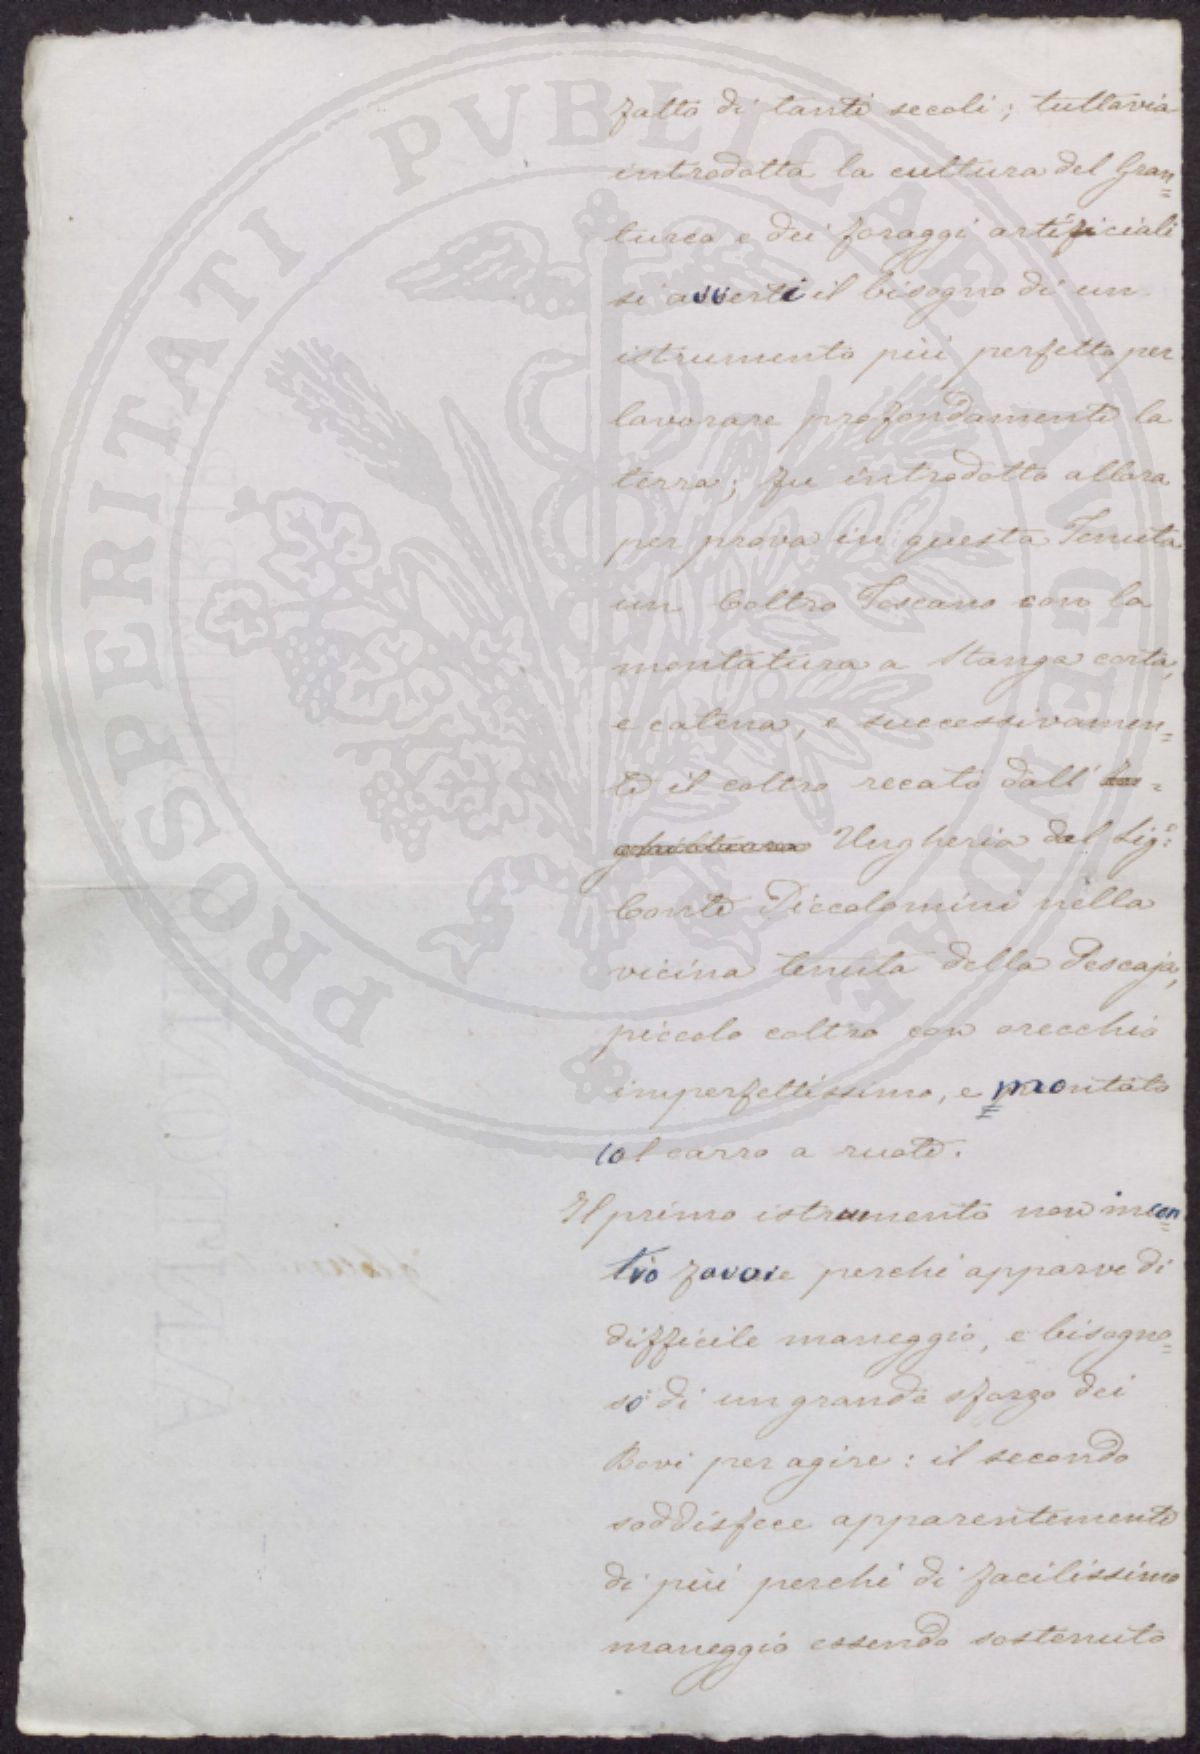 PROSPERITATI PVBLICAE AVGENDAE
fatto di tanti secoli; tuttavia
introdotta la cultura del Gran=
turco e dei foraggi artificiali
si avvertì il bisogno di un
istrumento più perfetto per
lavorare profondamente la
terra; fu introdotto allora
per prova in questa Tenuta
un Coltro Toscano con la
montatura a Stanga corta,
e catena, e successivamen=
te il coltro recato dall'
Ungheria dal Sig:r
Conte Piccolomini nella
vicina tenuta della Pescaja,
piccolo coltro con orecchio
imperfettissimo, e montato
col carro a ruote.
Il primo istrumento non incon=
trò favore perchè apparve di
difficile maneggio, e bisogno=
so di un grande sforzo dei
Bovi per agire: il secondo
soddisfece apparentemente
di più perchè di facilissimo
maneggio essendo sostenuto